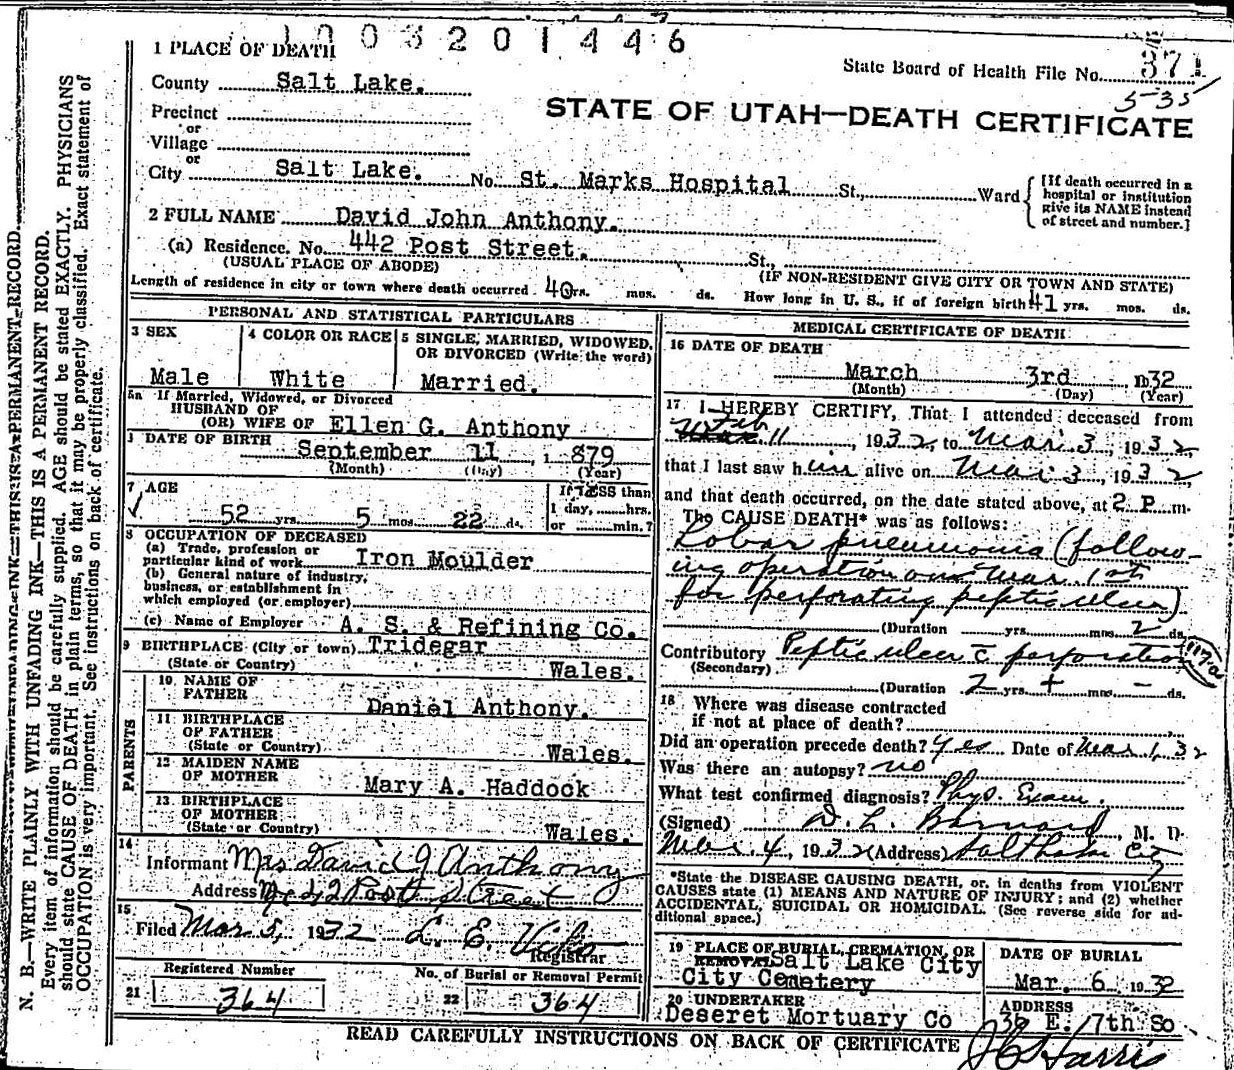 1003201446
1 PLACE OF DEATH
State Board of Health File No. 371
5-35
County Salt Lake.
STATE OF UTAH—DEATH CERTIFICATE
Precinct
or
Village
or
City Salt Lake. No. St. Marks Hospital St., Ward
[If death occurred in a hospital or institution give its NAME instead of street and number.]
2 FULL NAME David John Anthony.
(a) Residence. No. 442 Post Street. St.,
(USUAL PLACE OF ABODE) (IF NON-RESIDENT GIVE CITY OR TOWN AND STATE)
Length of residence in city or town where death occurred 40 yrs. mos. ds. How long in U. S., if of foreign birth 41 yrs. mos. ds.
PERSONAL AND STATISTICAL PARTICULARS
3 SEX
Male
4 COLOR OR RACE
White
5 SINGLE, MARRIED, WIDOWED, OR DIVORCED (Write the word)
Married.
5a If Married, Widowed, or Divorced
HUSBAND OF
(OR) WIFE OF Ellen G. Anthony
DATE OF BIRTH
September 11, 1879
(Month) (Day) (Year)
7 AGE
52 yrs. 5 mos. 22 ds.
If LESS than
1 day, hrs.
or min.?
8 OCCUPATION OF DECEASED
(a) Trade, profession or
particular kind of work Iron Moulder
(b) General nature of industry,
business, or establishment in
which employed (or employer)
(c) Name of Employer A. S. & Refining Co.
9 BIRTHPLACE (City or town) Tridegar
(State or Country) Wales.
PARENTS
10 NAME OF
FATHER Daniel Anthony.
11 BIRTHPLACE
OF FATHER
(State or Country) Wales.
12 MAIDEN NAME
OF MOTHER Mary A. Haddock
13 BIRTHPLACE
OF MOTHER
(State or Country) Wales.
14
Informant Mrs David J Anthony
Address 442 Post Street
15
Filed Mar 5, 1932 L. E.
Registrar
Registered Number
21 364
No. of Burial or Removal Permit
22 364
MEDICAL CERTIFICATE OF DEATH
16 DATE OF DEATH
March 3rd, 1932
(Month) (Day) (Year)
17 I HEREBY CERTIFY, That I attended deceased from
Feb 11, 1932, to Mar 3, 1932
that I last saw him alive on Mar 3, 1932,
and that death occurred, on the date stated above, at 2 P. m.
The CAUSE DEATH* was as follows:
Lobar pneumonia (follow-
ing operation on Mar. 1st
for perforating peptic ulcer)
(Duration yrs. mos. 2 ds.
Contributory Peptic ulcer c̄ perforation
(Secondary)
117a
(Duration 2 yrs. + mos. - ds.
18 Where was disease contracted
if not at place of death?
Did an operation precede death? yes Date of Mar 1, 32
Was there an autopsy? no
What test confirmed diagnosis? Phys. Exam.
(Signed) D. L. Barnard, M. D.
Mar. 4, 1932 (Address) Salt Lake City
*State the DISEASE CAUSING DEATH, or, in deaths from VIOLENT
CAUSES state (1) MEANS AND NATURE OF INJURY; and (2) whether
ACCIDENTAL, SUICIDAL OR HOMICIDAL. (See reverse side for ad-
ditional space.)
19 PLACE OF BURIAL, CREMATION, OR
REMOVAL Salt Lake City
City Cemetery
DATE OF BURIAL
Mar. 6 1932
20 UNDERTAKER
Deseret Mortuary Co
ADDRESS
36 E. 7th So
READ CAREFULLY INSTRUCTIONS ON BACK OF CERTIFICATE
Harris
N. B.—WRITE PLAINLY WITH UNFADING INK—THIS IS A PERMANENT RECORD.
Every item of information should be carefully supplied. AGE should be stated EXACTLY. PHYSICIANS
should state CAUSE OF DEATH in plain terms, so that it may be properly classified. Exact statement of
OCCUPATION is very important. See instructions on back of certificate.